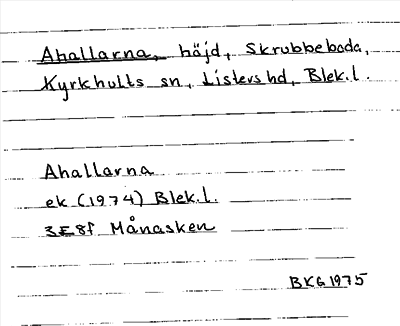 Ahallarna, höjd, Skrubbeboda,
Kyrkhults sn, Listers hd, Blek.l.
Ahallarna
ek (1974) Blek.l.
3E8f Månasken
BKG 1975